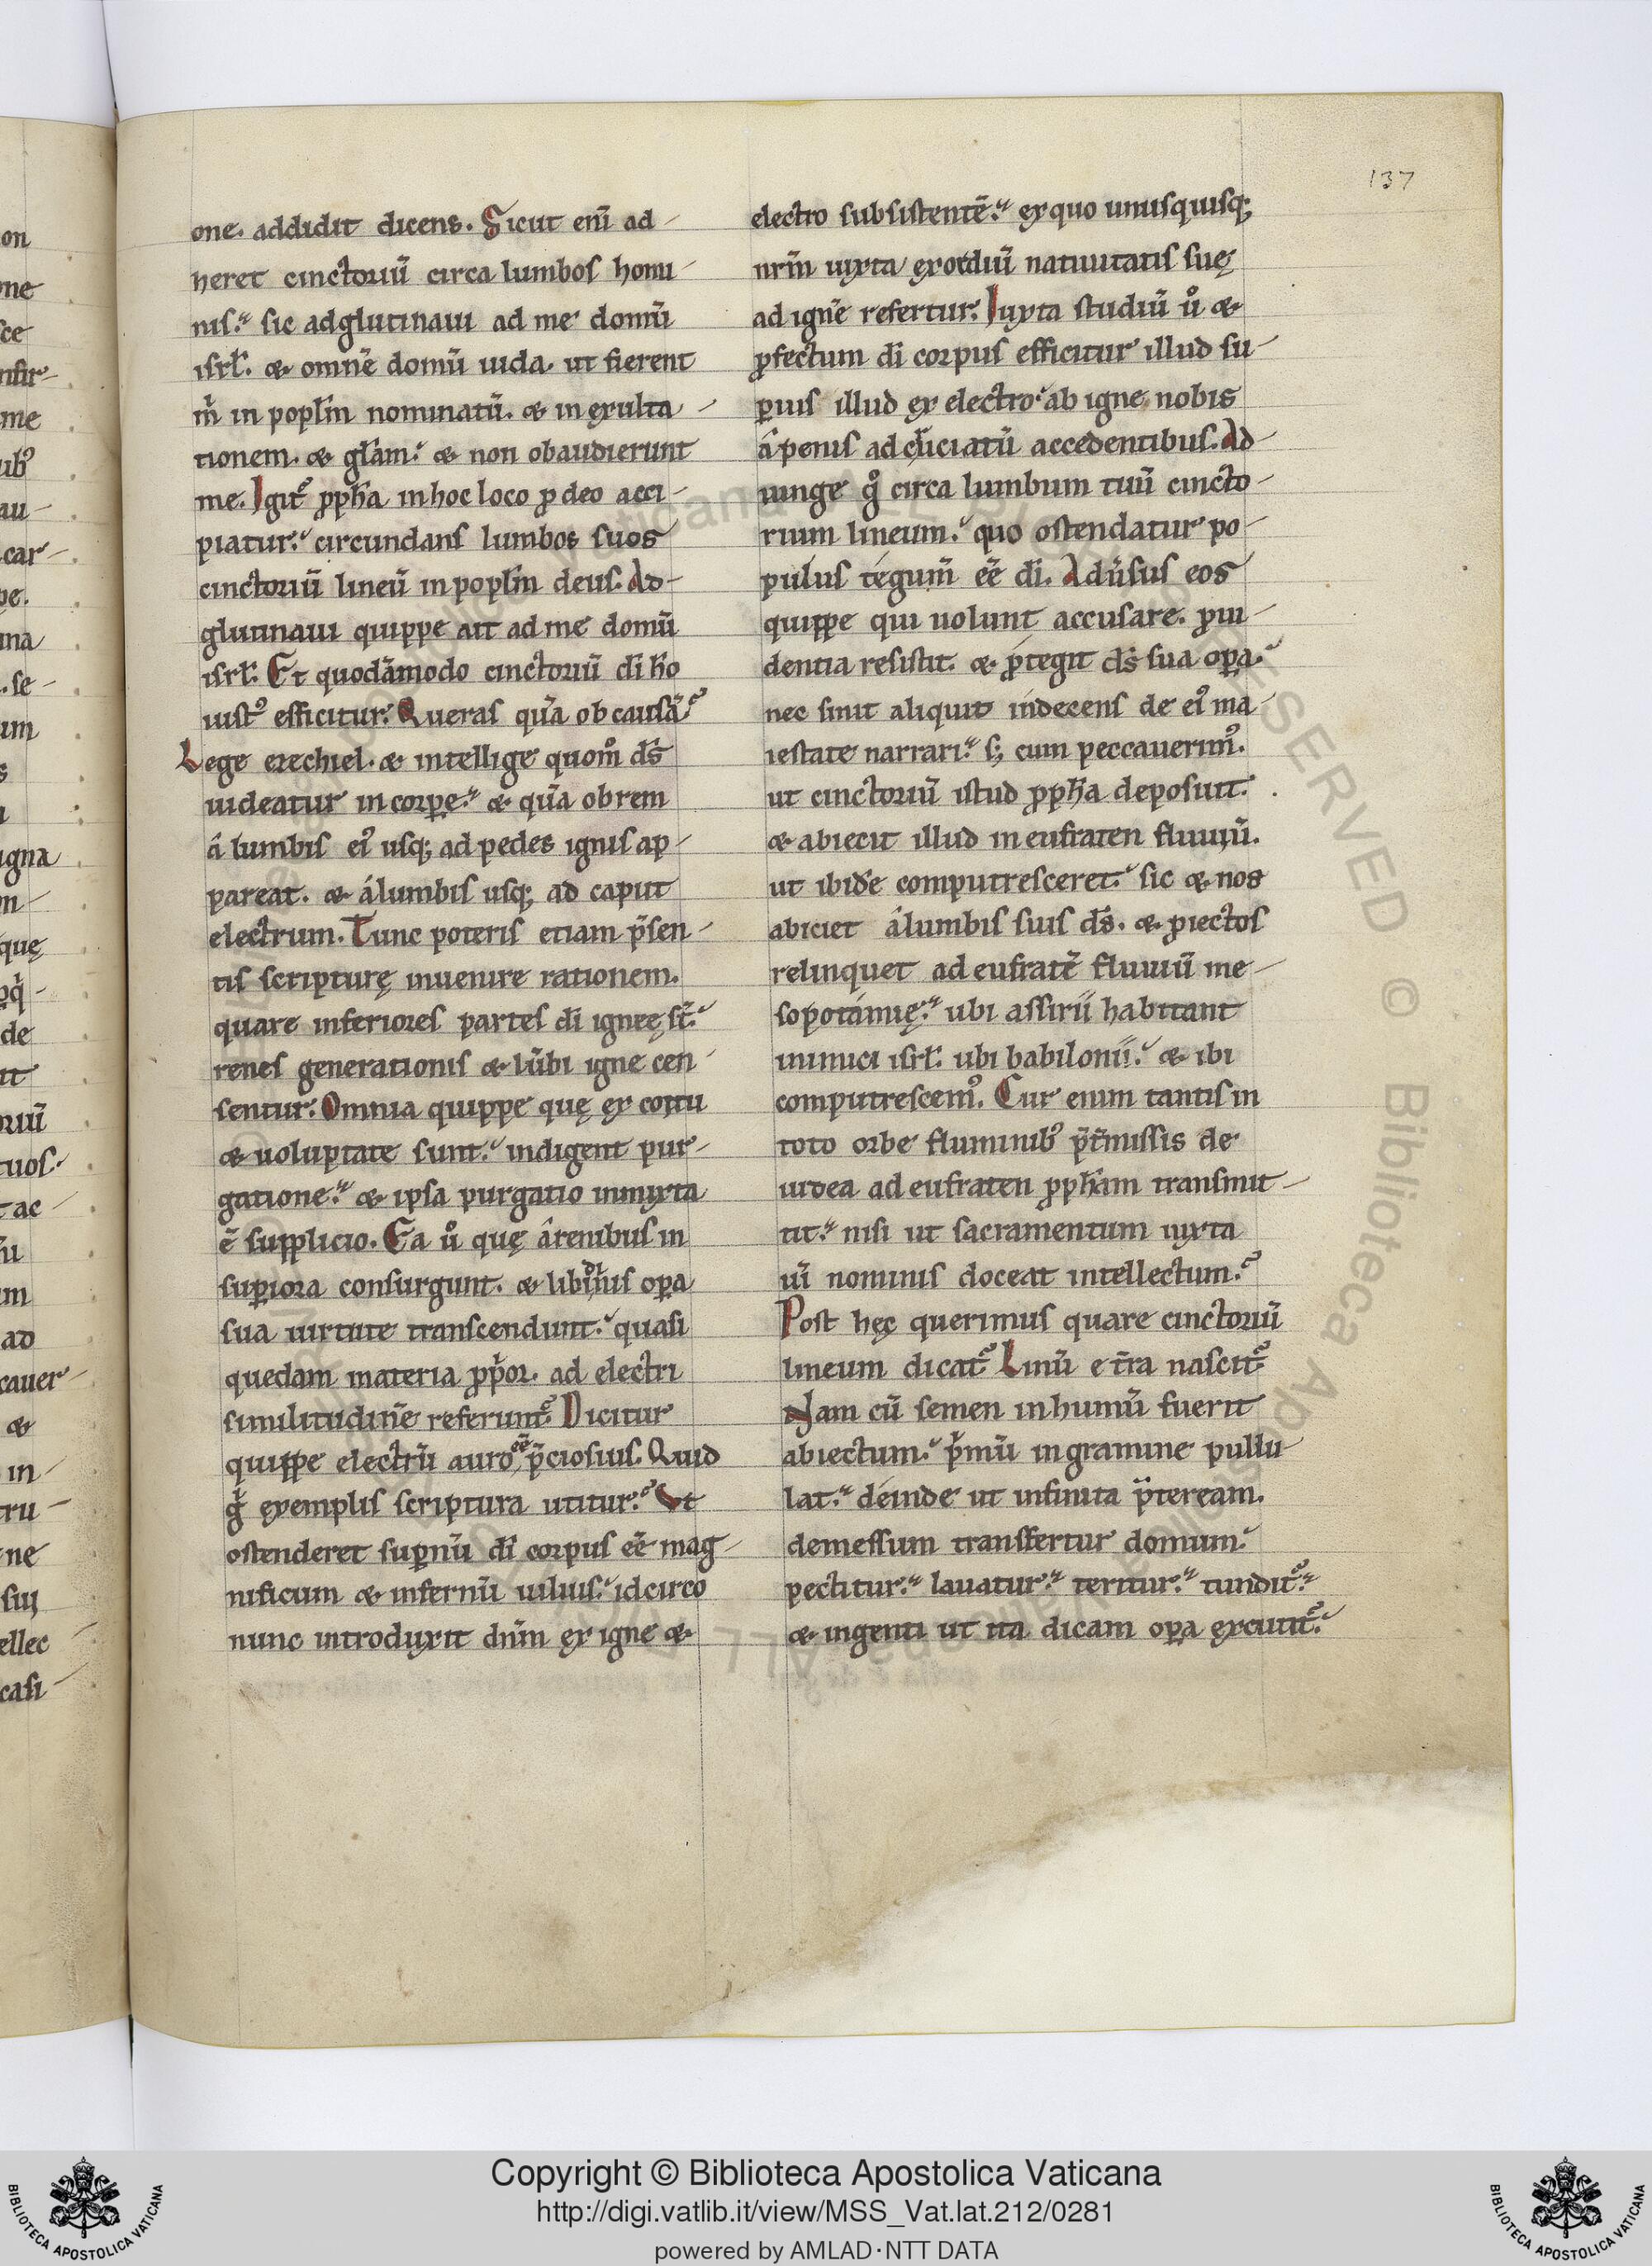 137
one. addidit dicens. Sicut eni̅ ad-
heret cinctoriu̅ circa lumbos homi-
nis. sic adglutinaui ad me domu̅
isrl̅. & omne̅ domu̅ iuda. ut fierent
m̅ in popl̅m nominatu̅. & in exulta-
tionem. & gl̅am. & non obaudierunt
me. Igit᷑ ꝓph̅a in hoc loco ꝓ deo acci-
piatur. circundans lumbos suos
cinctoriu̅ lineu̅ in popl̅m deus. Ad-
glutinaui quippe ait ad me domu̅
isrl̅. Et quoda̅modo cinctoriu̅ di̅ ho̅
iustꝰ efficitur. Queras qua̅ ob causa̅.
Lege ezechiel. & intellige quom̊ ds̅
uideatur in corꝑe. & qua̅ ob rem
a lumbis eiꝰ usq; ad pedes ignis ap-
pareat. & a lumbis usq; ad caput
electrum. Tunc poteris etiam p̅sen-
tis scripturę inuenire rationem.
quare inferiores partes di̅ igneę st̅.
renes generationis & lu̅bi igne cen-
sentur. Omnia quippe quę ex coitu
& uoluptate sunt. indigent pur-
gatione. & ipsa purgatio inmixta
e̅ supplicio. Ea ů quę a renibus in
suꝑiora consurgunt. & libinis oꝑa
sua uirtute transcendunt. quasi
quedam materia ad electri
similitudine̅ referunt᷑. Dicitur
quippe electru̅ auro ee̅ p̅ciosius. Quid
g̊ exemplis scriptura utitur. Vt
ostenderet suꝑnu̅ di̅ corpus ee̅ mag-
nificum & infernu̅ uilius. idcirco
nunc introduxit dn̅m ex igne &
electro subsistente̅. ex quo unusquisq;
nr̅m iuxta exordiu̅ natiuitatis suę
ad igne̅ refertur. Iuxta studiu̅ ů &
ꝓfectum di̅ corpus efficitur illud su-
ꝑius illud ex electro. ab igne nobis
a penis ad cruciatu̅ accedentibus. Ad-
iunge g̊ circa lumbum tuu̅ cincto-
rium lineum. quo ostendatur po-
pulus tegum̅ ee̅ di̅. Aduͥsus eos
quippe qui uolunt accusare. ꝓui-
dentia resistit. & ꝓtegit ds̅ sua oꝑa.
nec sinit aliquit indecens de eiꝰ ma-
iestate narrari. s; cum peccauerimꝰ.
ut cinctoriu̅ istud ꝓph̅a deposuit.
& abiecit illud in eufraten fluuiu̅.
ut ibide computresceret. sic & nos
abiciet a lumbis suis ds̅. & ꝓiectos
relinquet ad eufrate̅ fluuiu̅ me-
sopotamię. ubi assirii habitant
inimici isrl̅. ubi babilonii. & ibi
computrescemꝰ. Cur enim tantis in
toto orbe fluminibꝰ p̅t̅missis de
iudea ad eufraten ꝓph̅am transmit-
tit. nisi ut sacramentum iuxta
ui̅ nominis doceat intellectum.
Post hęc querimus quare cinctoriu̅
lineum dicat᷑. Linu̅ e tr̅a nascit᷑.
Nam cu̅ semen in humu̅ fuerit
abiectum. pͥmu̅ in gramine pullu-
lat. deinde ut infinita p̅teream.
demessum transfertur domum.
pectitur. lauatur. teritur. tundit᷑.
& ingenti ut ita dicam oꝑa excutit᷑.
Copyright © Biblioteca Apostolica Vaticana
http://digi.vatlib.it/view/MSS_Vat.lat.212/0281
powered by AMLAD·NTT DATA
BIBLIOTECA APOSTOLICA VATICANA
BIBLIOTECA APOSTOLICA VATICANA